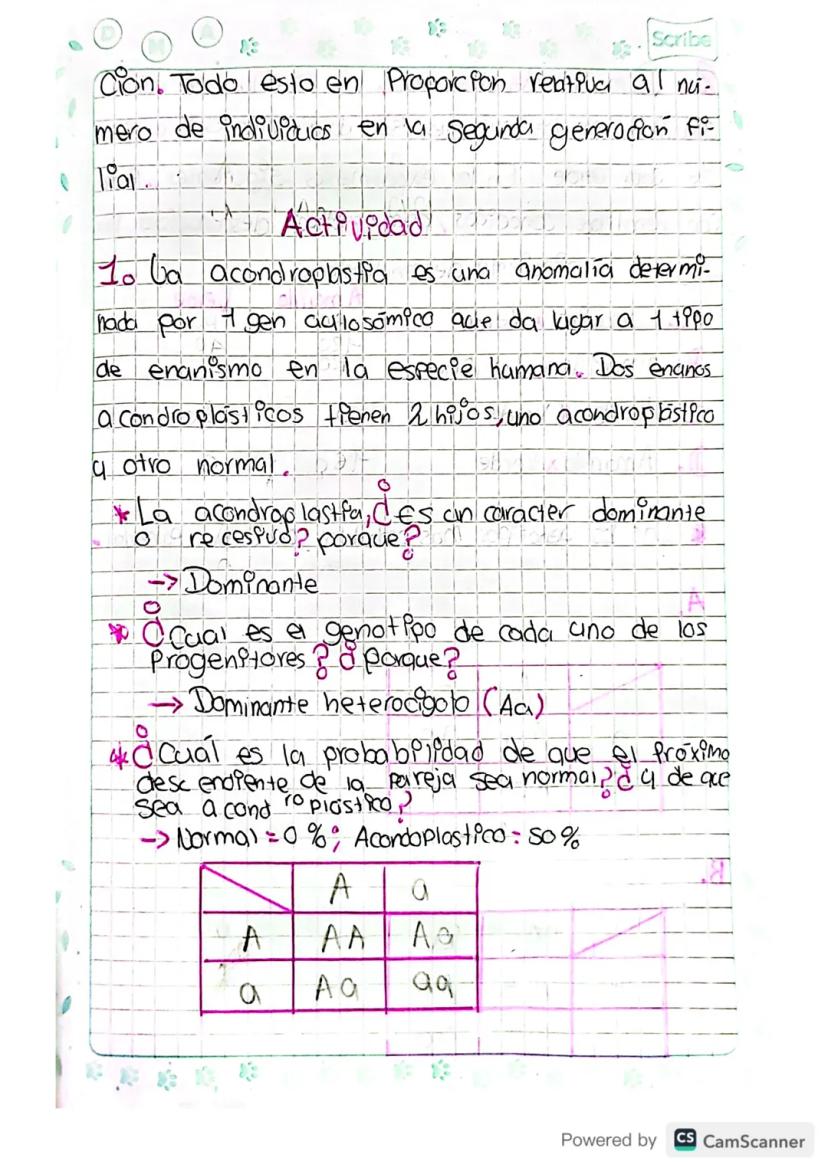 D M A
Scribe
ción. Todo esto en Proporcion relativa al nú-
mero de individuos en la Segunda generación fi-
lial.
Actividad
1. La acondroplastia es una anomalía determi-
nada por 1 gen autosómico que da lugar a 1 tipo
de enanismo en la especie humana. Dos enanos
acondroplásticos tienen 2 hijos, uno acondroplástico
y otro normal.
* La acondroplastia, ¿es un caracter dominante
o recesivo? porque?
→ Dominante
* ¿Cual es el genotipo de cada uno de los
Progenitores? ¿porque?
→ Dominante heterocigoto (Aa)
* ¿Cuál es la probabilidad de que el Próximo
descendiente de la pareja sea normal? ¿y de que
sea acondroplástico?
→ Normal = 0 %; Acondoplastico = 50 %
A a
A AA Aa
a Aa aa
Powered by CS CamScanner